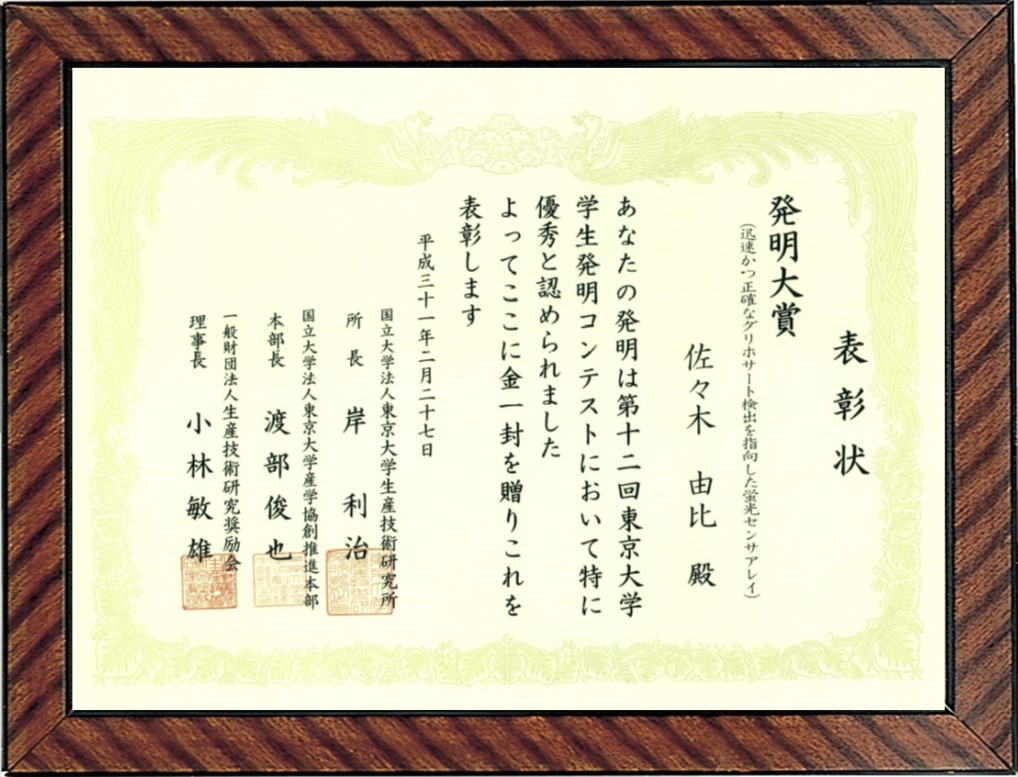 表彰状
発明大賞
(迅速かつ正確なグリホサート検出を指向した蛍光センサアレイ)
佐々木 由比 殿
あなたの発明は第十二回東京大学
学生発明コンテストにおいて特に
優秀と認められました
よってここに金一封を贈りこれを
表彰します
平成三十一年二月二十七日
国立大学法人東京大学生産技術研究所
所長 岸 利治
国立大学法人東京大学産学協創推進本部
本部長 渡部俊也
一般財団法人生産技術研究奨励会
理事長 小林敏雄